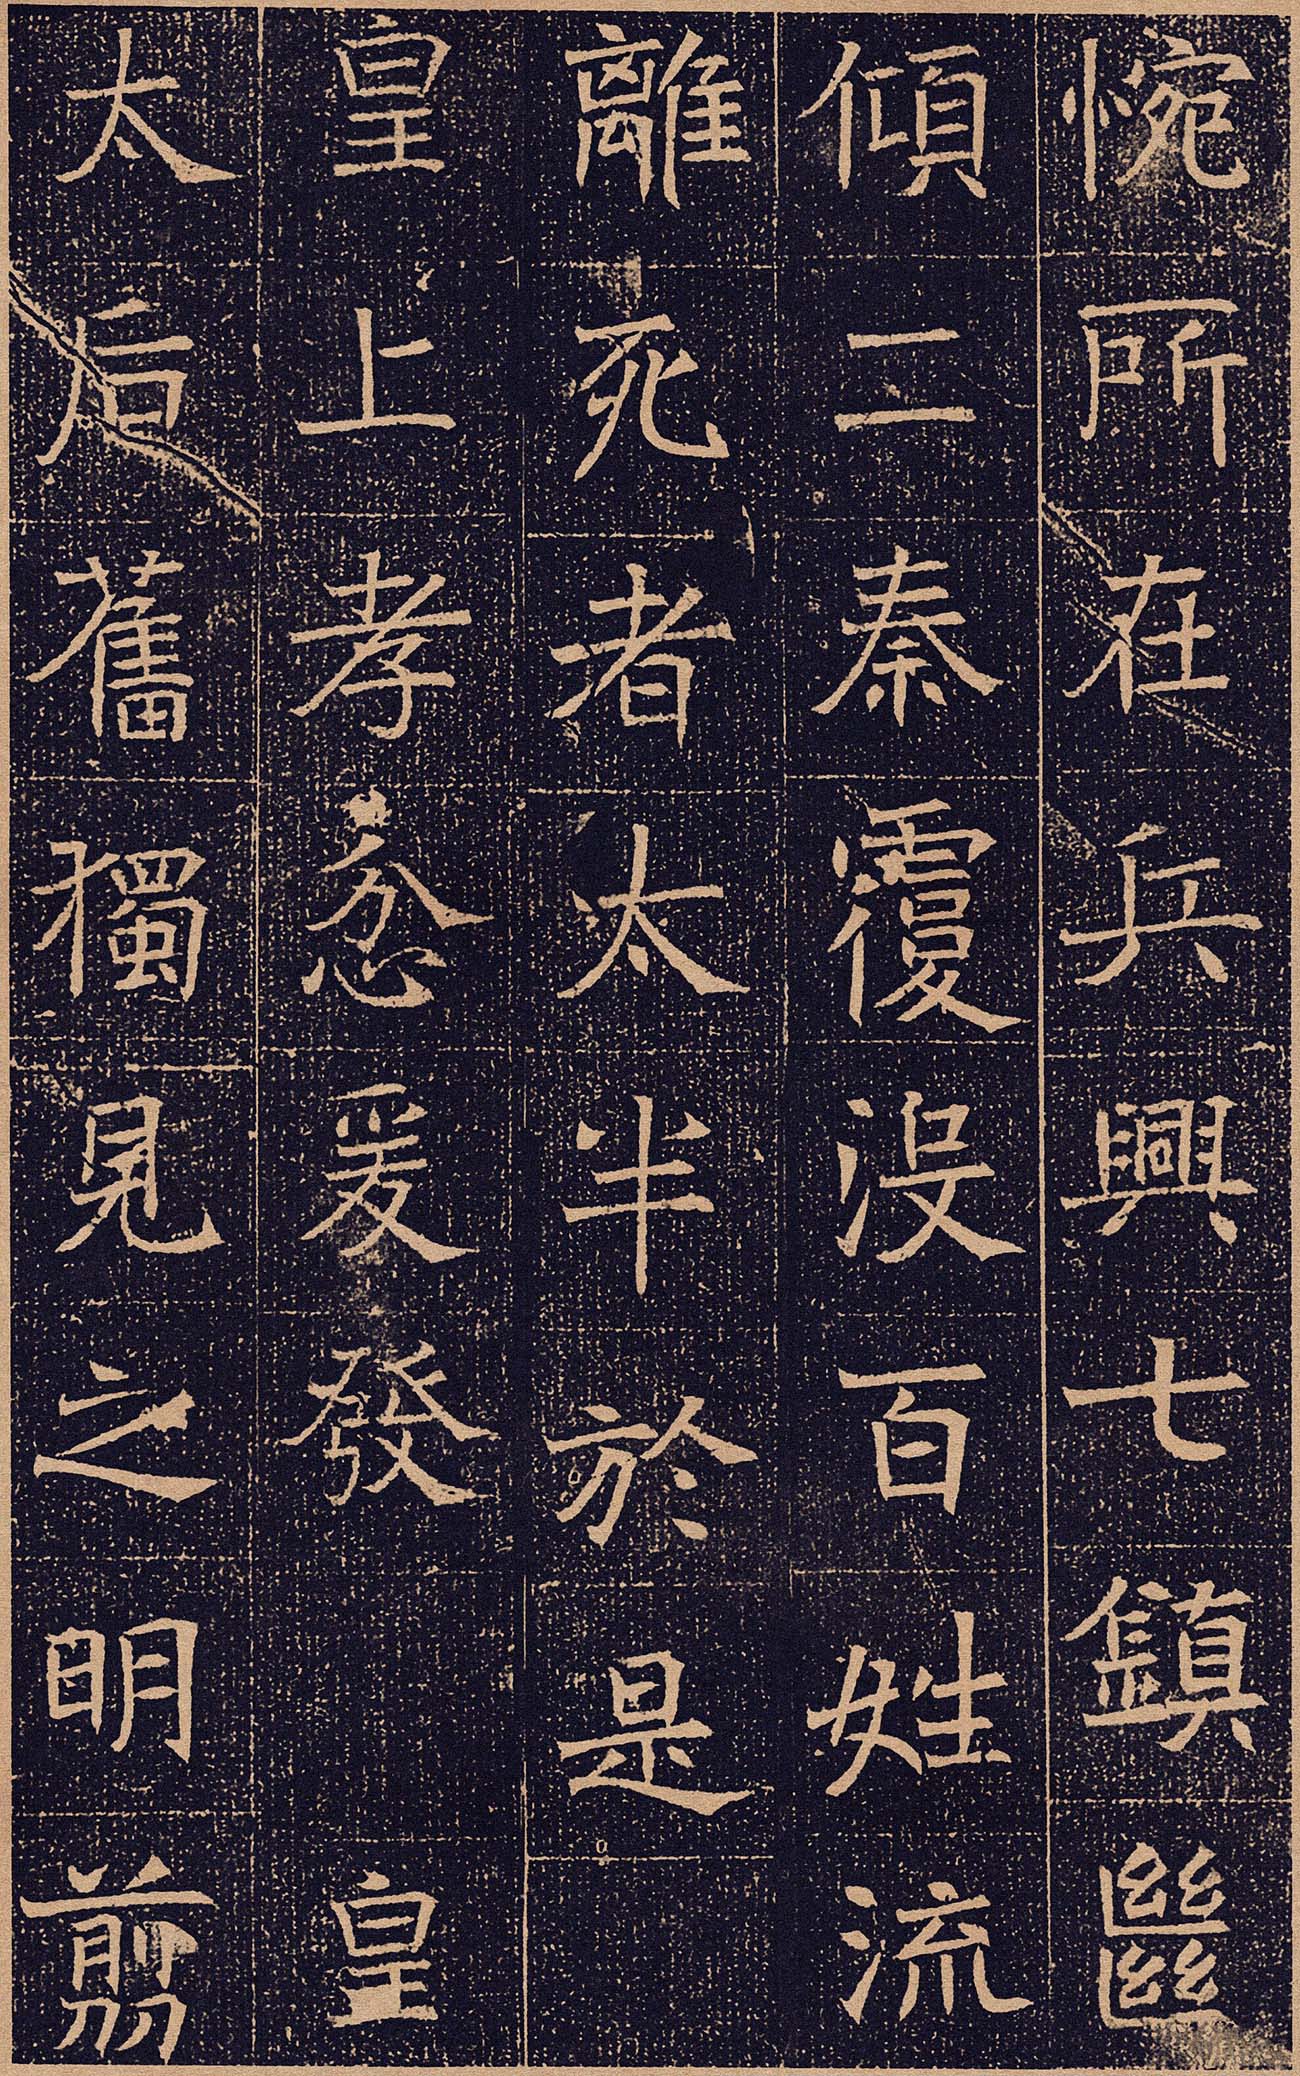 惋所在兵興七鎮㡭
傾二秦覆没百姓流
離死者太半於是
皇上孝忿爰發　皇
太后舊獨見之明剪